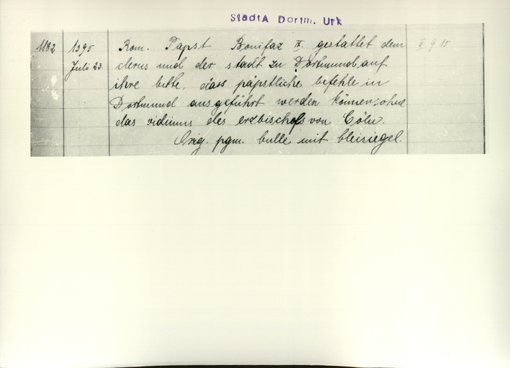 StadtA Dortm. Urk
1182 1395 Rom. Papst Bonifaz IX. gestattet dem
Juli 23. clerus und der stadt zu Dortmund auf
ihre bitte, dass päpstliche befehle in
Dortmund ausgeführt werden können, ohne
das vidimus des erzbischofs von Cöln.
Orig. pgm. bulle mit bleisiegel.